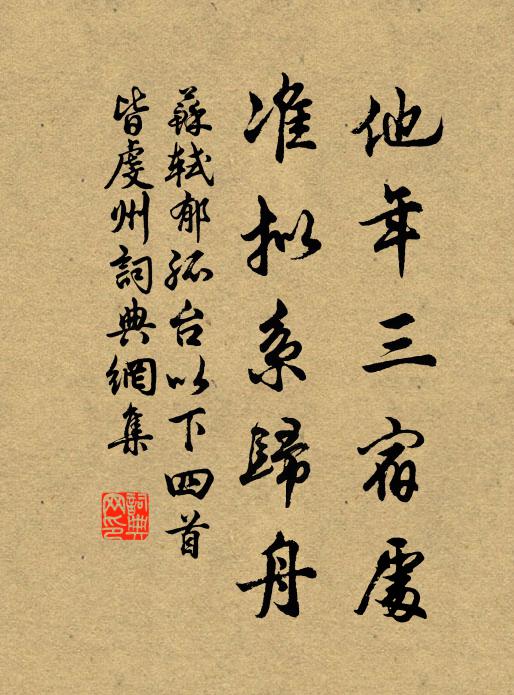 他年三宿處
准拟系歸舟
蘇轼郁孤台以下四首
皆虔州詞典網集
詞典
网印